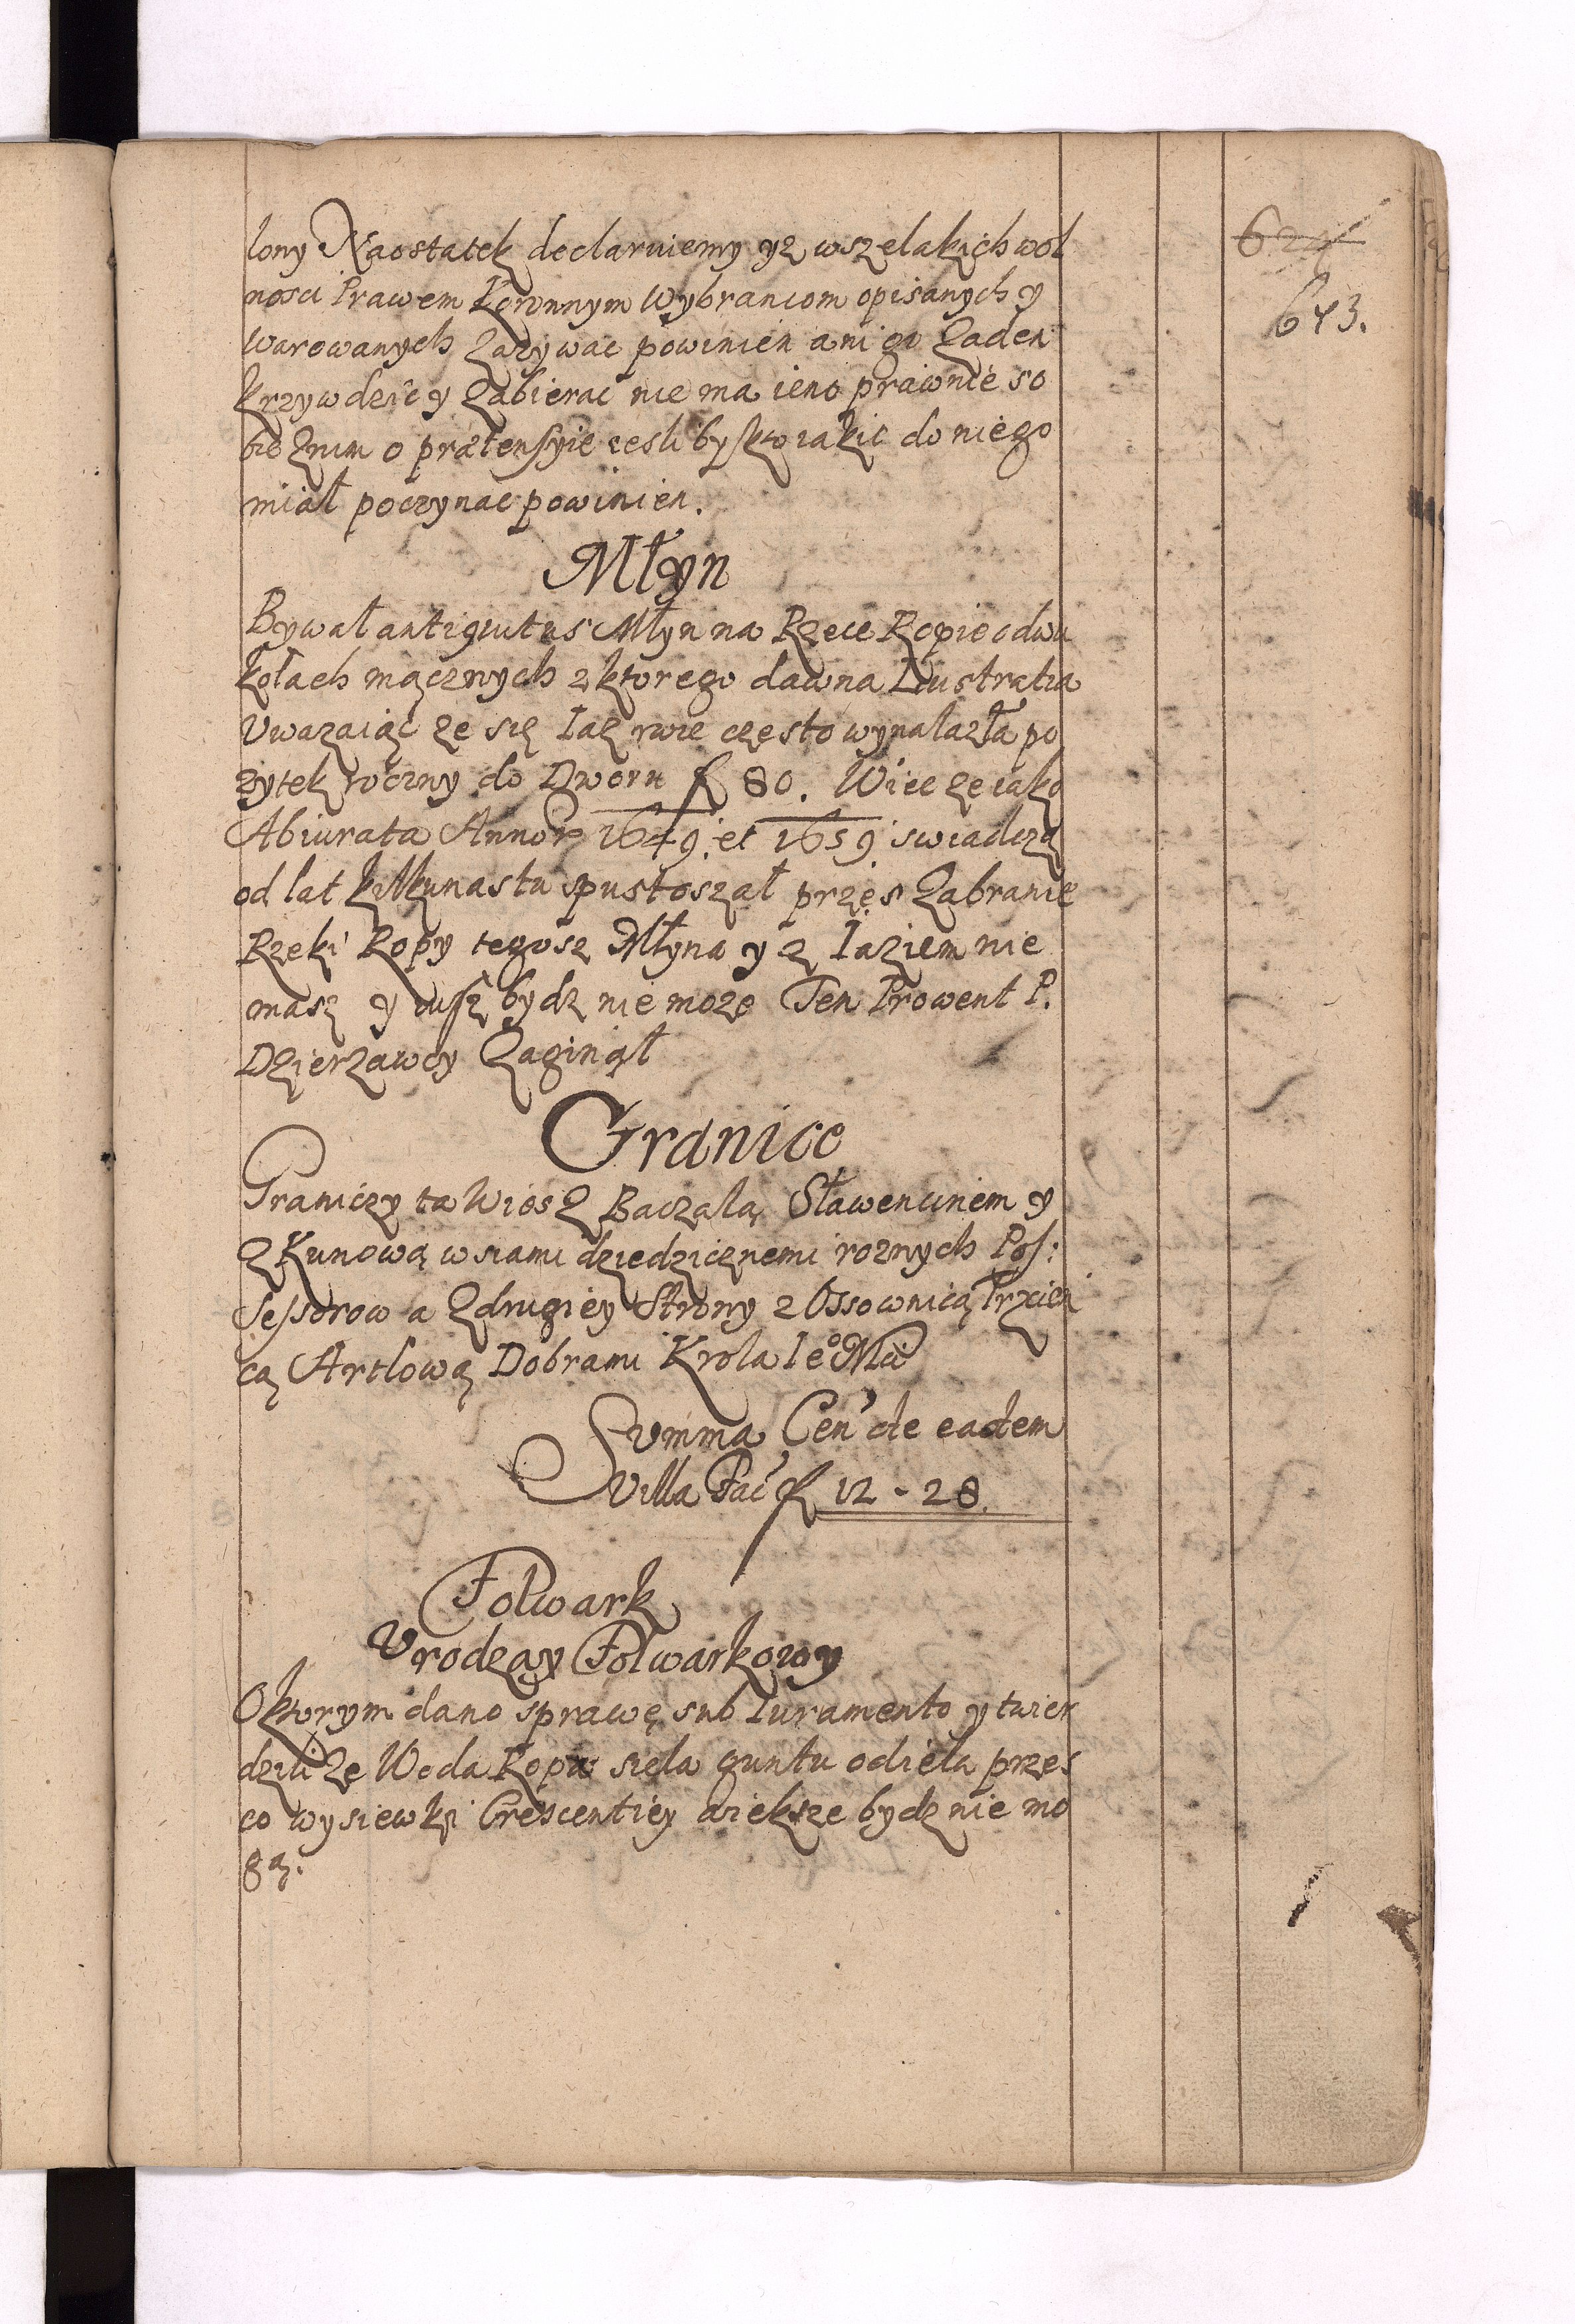 624
643.
lony Naostatek declaruiemy yz wszelakich wol
nosci Prawem Koronnym Wybrancom opisanych y
warowanych Zazywac powinien ani go Zaden
krzywdzic y Zabierac nie ma ieno prawnie so
bie Znim o prætensyie iesli by kto iakie do niego
miał poczynac powinien.
Młyn
Bywał antiquitus Młyn na Rzece Ropie o dwu
kołach mącznych z ktorego dawna Lustratia
Uwazaiąc ze się Iaz rwie często wynalazła po
zytek roczny do Dworu f 80. Wiec ze iako
Abiurata Annor 1649 et 1659 swiadczą
od lat kilkunastu spustoszał przes Zabranie
Rzeki Ropy tegosz Młyna y z Iaziem nie
masz y iusz bydz nie moze Ten Prowent P.
Dzierzawcy Zaginął
Granice
Graniczy ta Wies Z Baczalą Sławencinem y
Z Kunową wsiami dziedzicznemi roznych Pos:
sessorow a Zdrugiey Strony z Ossownicą Trzcien
cą Artlową Dobrami Krola Ieo Mci
Summa Cen' de eadem
Villa Fac' f 12 - 28.
Folwark
Vrodzay Folwarkowy
O ktorym dano sprawę sub Iuramento y twier
dzili ze Woda Ropa sieła guntu odieła przes
co wysiewki Crescentiey wieksze bydz nie mo
gą.